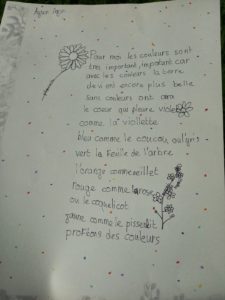 Pour moi les couleurs sont
très important, important car
avec les couleurs la terre
devient encore plus belle
sans couleurs ont aura
le coeur que pleure violet
comme la viollette
bleu comme le coucou, ou gris
vert la feuille de l'arbre
l'orange comme œillet
rouge comme la rose
ou le coquelicot
jaune comme le pissenlit
profitons des couleurs